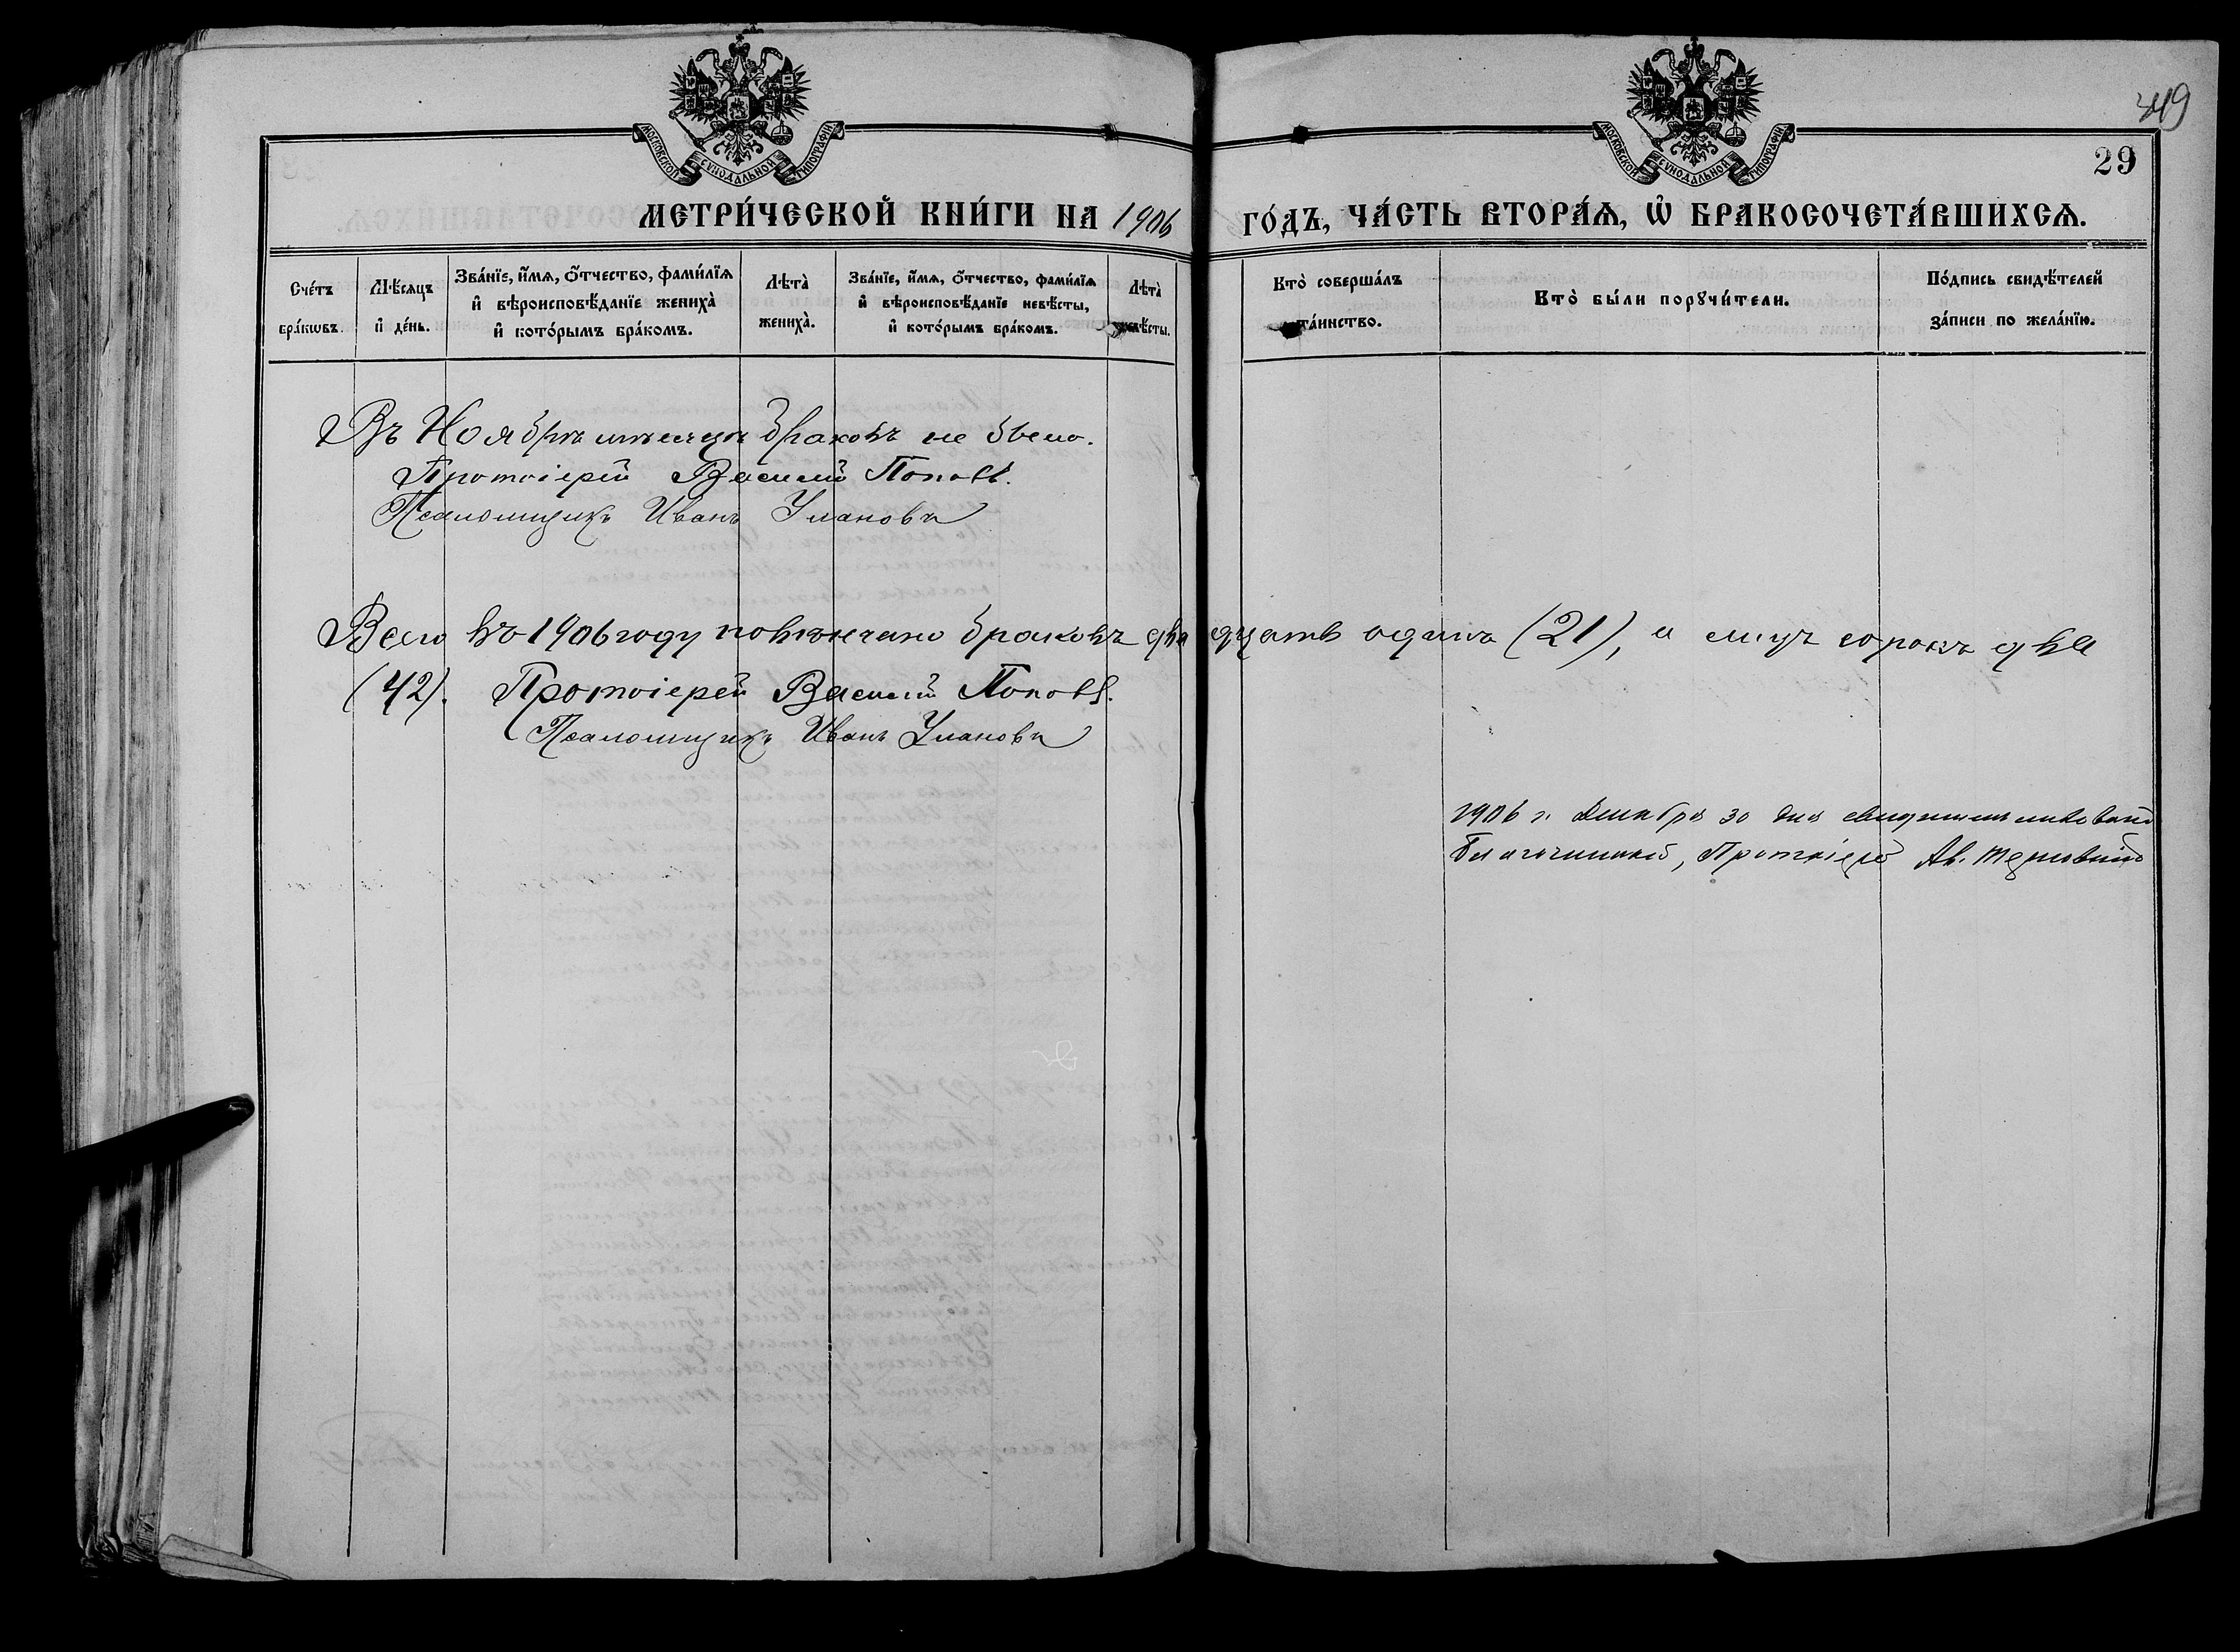 349
29
МОСКОВСКОЙ СѴНОДАЛЬНОЙ ТИПОГРАФІИ
МОСКОВСКОЙ СѴНОДАЛЬНОЙ ТИПОГРАФІИ
МЕТРИ́ЧЕСКОЙ КНИ́ГИ НА 1906 ГО́ДЪ, ЧА́СТЬ ВТОРА́Ѧ, Ѡ҆ БРАКОСОЧЕТА́ВШИХСѦ.
Сче́тъ бра́кѡвъ.
Мѣ́сяцъ и҆ де́нь.
Зва́нїе, и҆́мѧ, ѻ҆́тчество, фами́лїѧ и҆ вѣроисповѣ́данїе жениха̀ и҆ кото́рымъ бра́комъ.
Лѣта̀ жениха̀.
Зва́нїе, и҆́мѧ, ѻ҆́тчество, фами́лїѧ и҆ вѣроисповѣ́данїе невѣ́сты, и҆ кото́рымъ бра́комъ.
Лѣта̀ невѣ́сты.
Кто̀ соверша́лъ та́инство.
Кто̀ бы́ли порꙋчи́тели.
По́дпись свидѣ́телей за́писи по жела́нїю.
Въ Ноябрѣ мѣсяцѣ браковъ не было.
Протоіерей Василій Поповъ.
Псаломщикъ Иванъ Улановъ
Всего въ 1906 году повѣнчано браковъ двадцать одинъ (21), а лицъ сорокъ два
(42). Протоіерей Василій Поповъ.
Псаломщикъ Иванъ Улановъ
1906 г. Декабря 30 дня свидѣтельствовалъ
Благочинный, Протоіерей Ал.